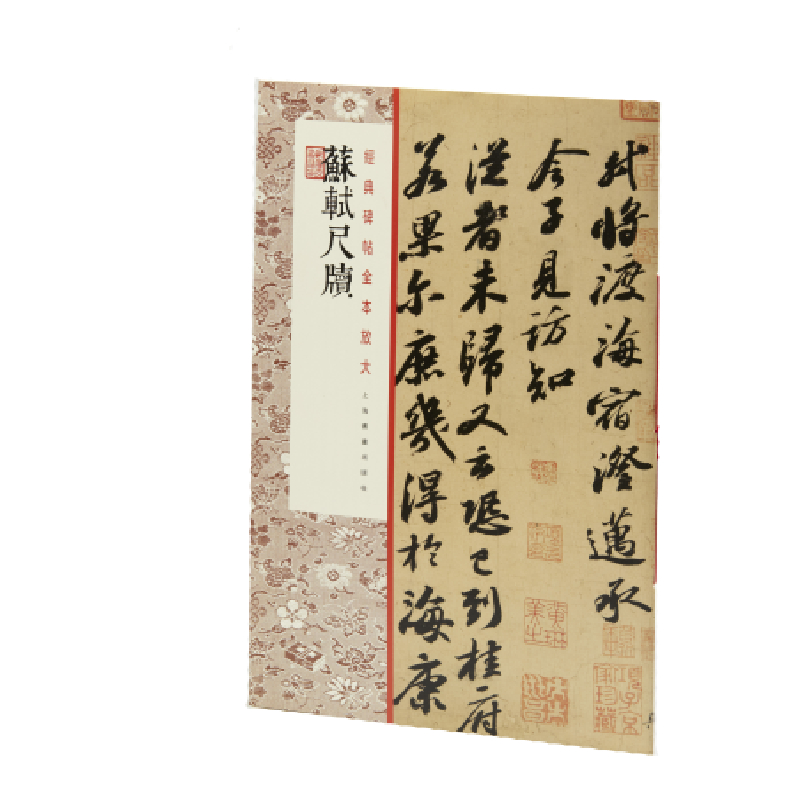 軾將渡海宿澄邁承
令子見訪知
從者未歸又云恐已到桂府
若果尔庶幾得於海康
經典碑帖全本放大
蘇軾尺牘